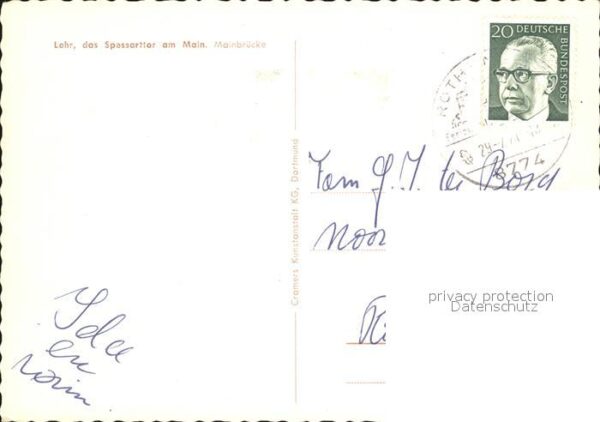 Lohr, das Spessarttor am Main. Mainbrücke
20 DEUTSCHE
BUNDESPOST
8774
Cramers Kunstanstalt KG, Dortmund
Fam G. J. ter Borch
Noor
Ki
privacy protection
Datenschutz
Ida
en